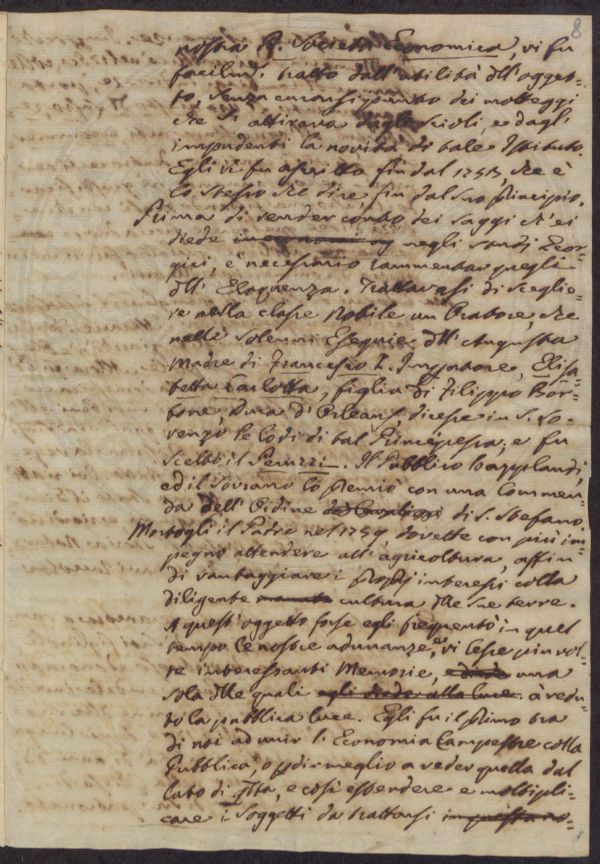 8
nostra R. Società Economica, vi fu
facilm.e tratto dall'utilità dell'ogget-
to, senza curarsi punto dei motteggi
che si attirava dagli Scioli, e dagl'
imprudenti la novità di tale Istituto.
Egli vi fu ascritto fin dal 1753, che è
lo stesso che dire, fin dal suo principio.
Prima di render conto dei saggi ch'ei
diede negli studj Geor-
gici, è necessario rammentar quegli
dell'Eloquenza. Trattavasi di sceglie-
re nella classe Nobile un Oratore, che
nelle solenni Esequie dell'Augusta
Madre di Francesco I. Imperatore, Elisa-
betta Carlotta, figlia di Filippo Bor-
bone, Duca d'Orleans, dicesse in S. Lo-
renzo le lodi di tal Principessa, e fu
scelto il Peruzzi. Il Pubblico l'applaudì,
ed il Sovrano lo premiò con una Commen-
da dell'Ordine de' Cavalieri di S. Stefano.
Mortogli il Padre nel 1759, dovette con più im-
pegno attendere all'agricoltura, affin
di vantaggiare i proprj interessi colla
diligente cultura delle sue terre.
A quest'oggetto forse egli frequentò in quel
tempo le nostre adunanze, e vi lesse più vol-
te interessanti Memorie, e diede una
sola delle quali egli diede alla luce à vedu-
to la pubblica luce. Egli fu il primo tra
di noi ad unir l'Economia Campestre colla
Pubblica, o per dir meglio a veder quella dal
lato di questa, e così estendere e moltipli-
care i soggetti da trattarsi in questa no-